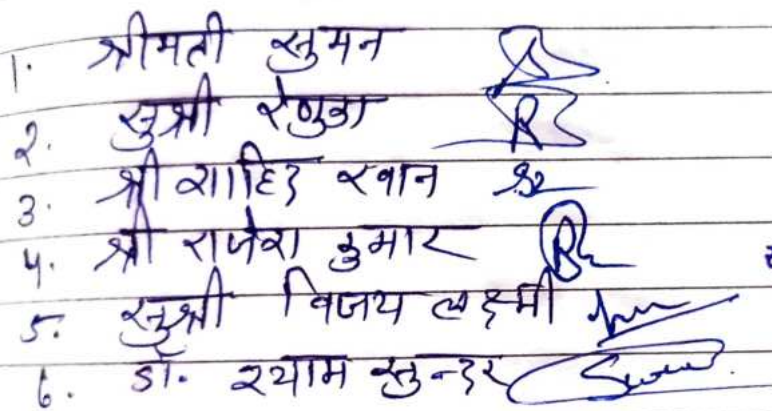 1. श्रीमती सुमन
2. सुश्री रेणुका
3. श्री शाहिद खान
4. श्री राजेश कुमार
5. सुश्री विजय लक्ष्मी
6. डॉ. श्याम सुन्दर